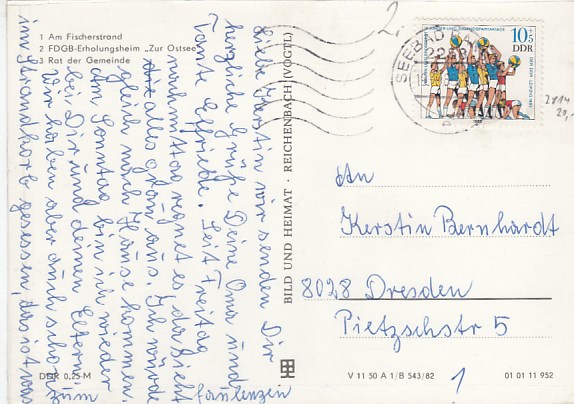 1 Am Fischerstrand
2 FDGB-Erholungsheim „Zur Ostsee"
3 Rat der Gemeinde
Liebe Kerstin wir senden Dir
herzliche Grüße Deine Oma und
Tante Elfriede. Seit Freitag
nachmittag regnet es, da sieht
alles grau aus. Ich würde
gleich nach Hause kommen.
Am Sonntag bin ich wieder
bei Dir und deinen Eltern.
Wir haben aber auch schon
im Strandkorb gesessen, das ist was
zum
faulenzen
DDR 0,25 M
BILD UND HEIMAT · REICHENBACH (VOGTL)
SEEBAD
10+5
DDR
2814
20,-
An
Kerstin Bernhardt
8028 Dresden
Pietzschstr 5
V 11 50 A 1/B 543/82
1
01 01 11 952